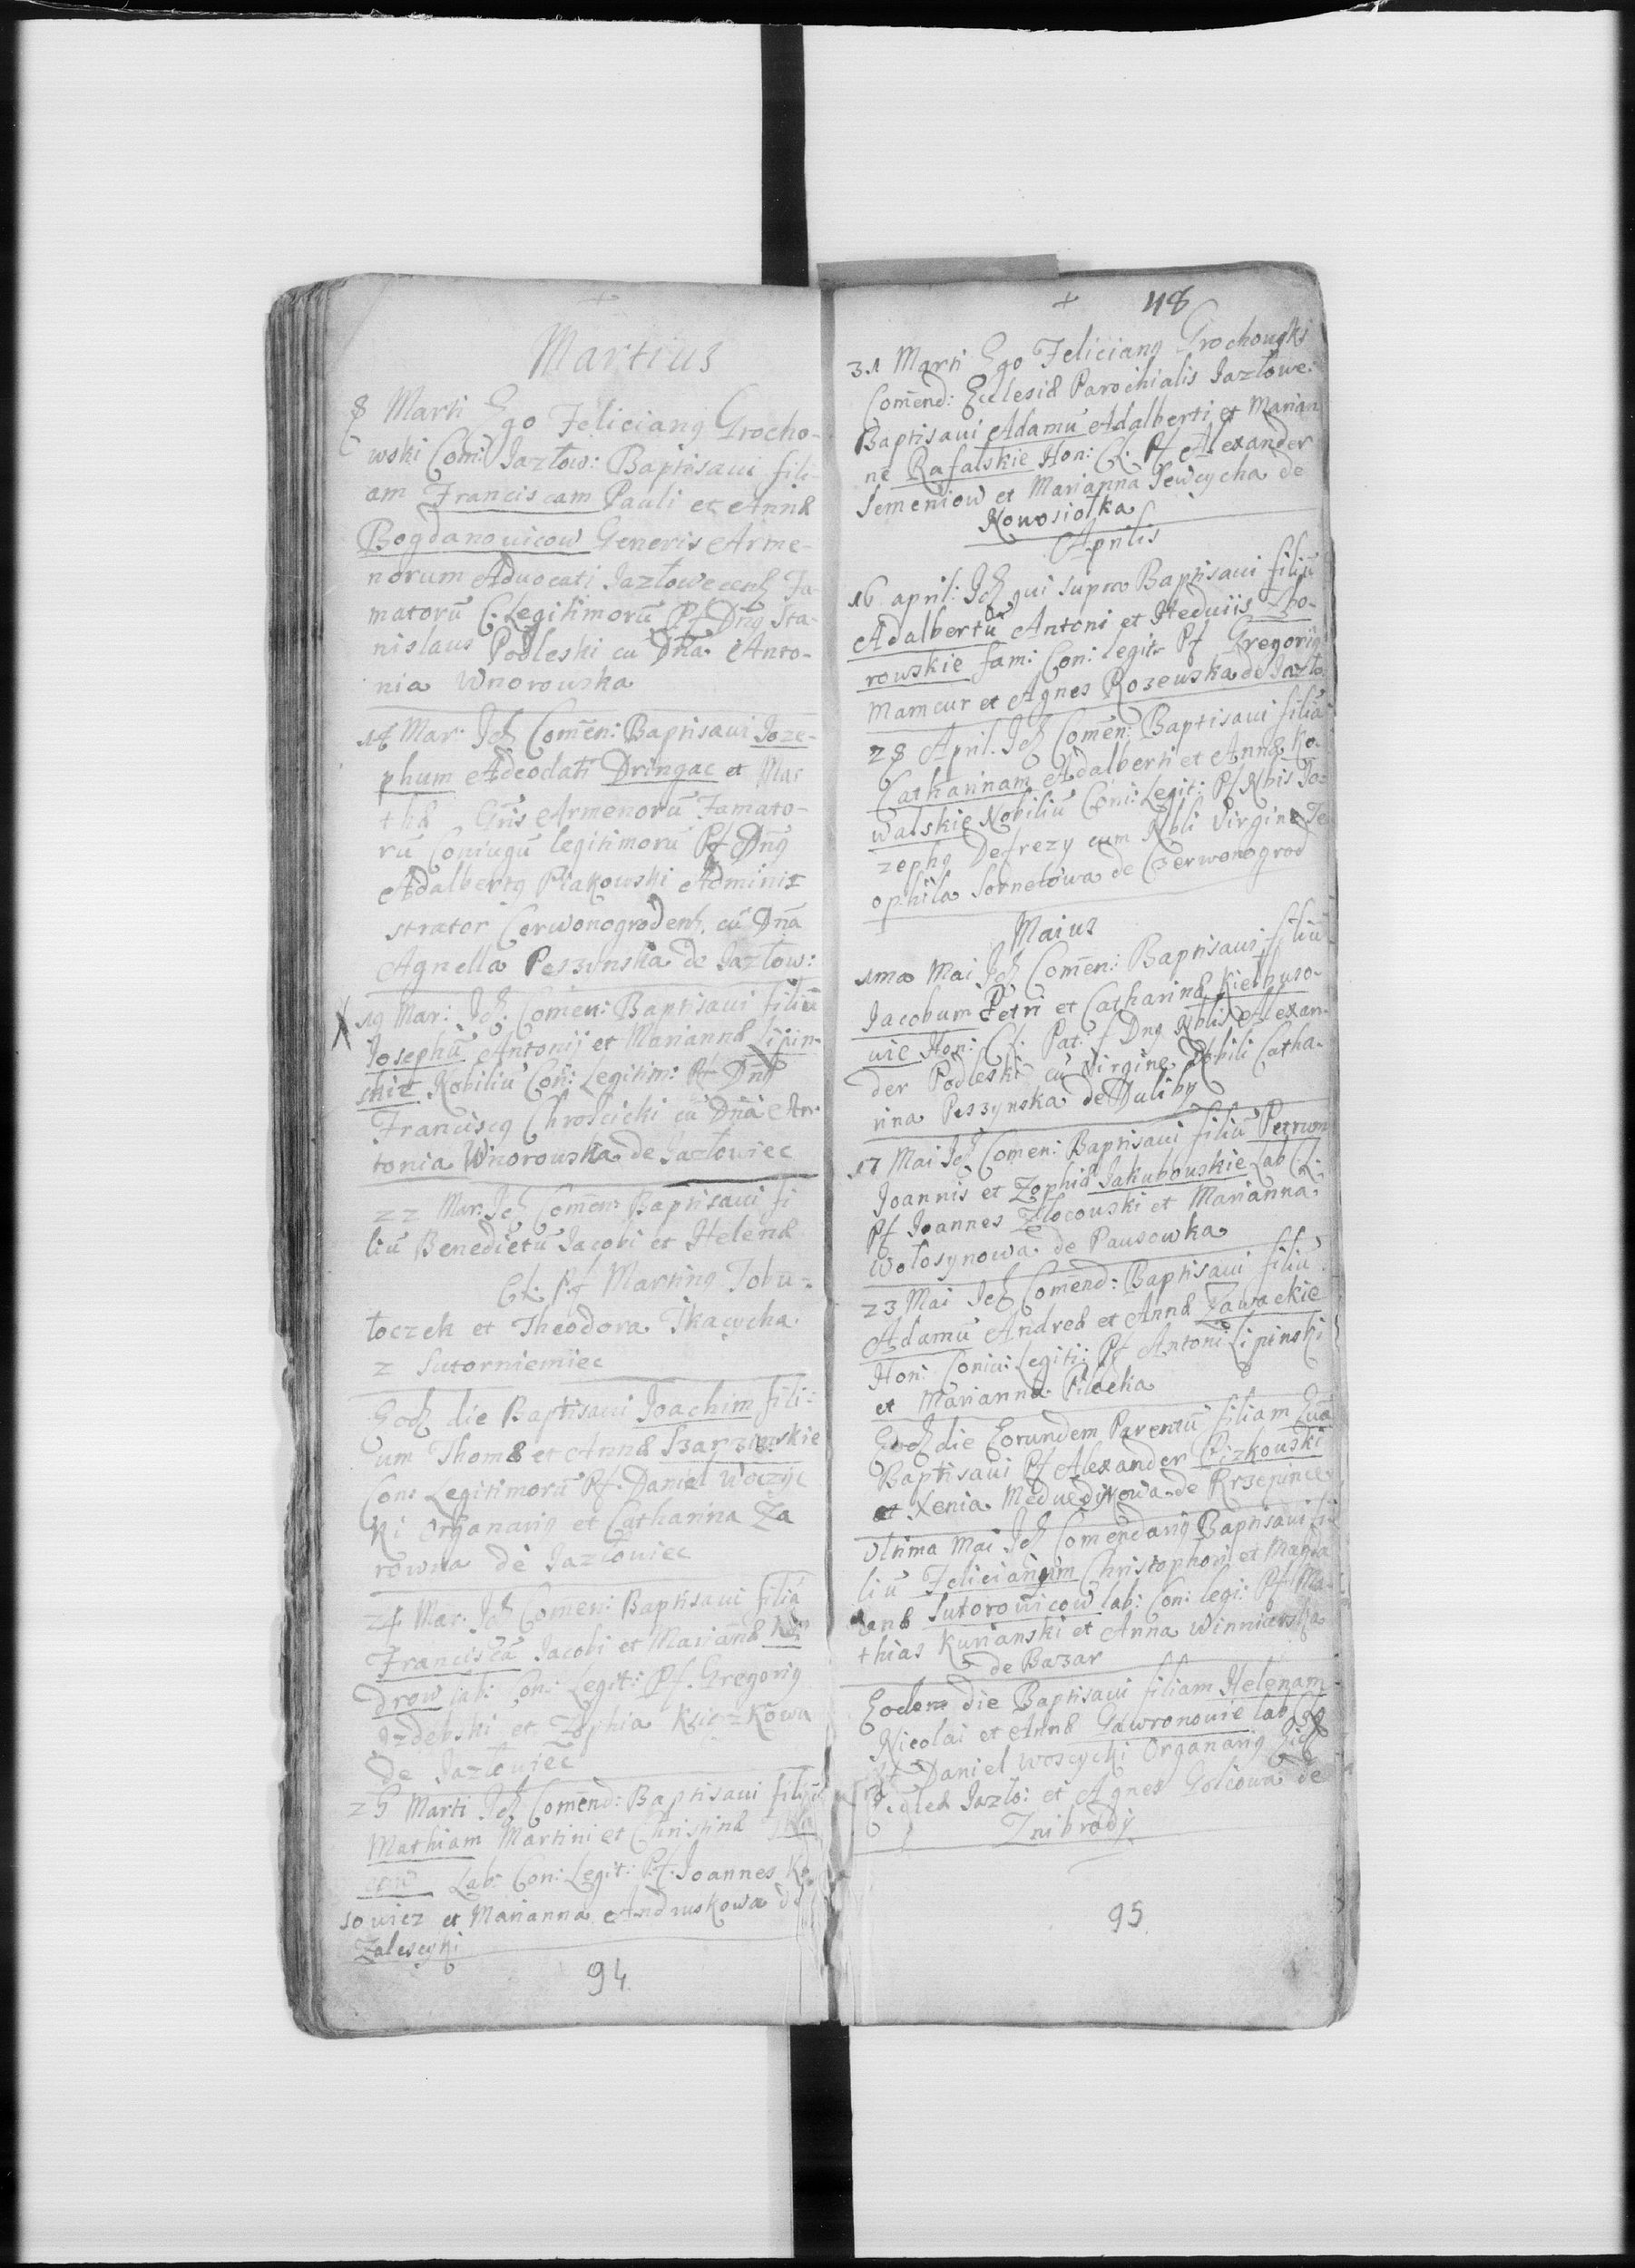 Martius
8 Marti Ego Felicianꝯ Grocho-
wski Com: Jazłow: Baptisavi fili-
am Franciscam Pauli et Annæ
Bogdanovicow Generis Arme-
norum Advocati Jazłowecenß Fa-
matorū C. Legitimorū Pf Dnꝯ Sta-
nislaus Podleski cu Dna Anto-
nia Wnorowska
14 Mar: Id Comēn: Baptisavi Joze-
phum Adeodati Dringac et Mar
thæ Gn̄is Armenorū Famato-
rū Coniugū legitimorū Pf Dnꝯ
Adalbertꝯ Piakowski Adminis
strator Cerwonogrodenß. cū Dnā
Agnella Peszynska de Jazłow:
X 19 Mar: Id Comen: Baptisavi filiū
Josephū Antonij et Mariannæ Lipin-
skie Nobiliū Con: Legitim: Pf Dnꝯ
Franciscꝯ Chroscicki cū Dnā An-
tonia Wnorowska de Jazłowiec
22 Mar: Id Comēn: Baptisavi fi
liū Benedictū Jacobi et Helenæ
CL: Pf Martinꝯ Tobu-
łoczek et Theodora Tkacycha
z Sutorniemiec
Eod die Baptisavi Joachim fili-
um Thomæ et Annæ Szarzinskie
Con: Legitimorū Pf. Daniel Woczyc
ki Organariꝯ et Catharina Za
rowna de Jazłowiec
24 Mar: Id Comen: Baptisavi filiā
Franciscā Jacobi et Mariānæ
drow lab: Con: Legit: Pf. Gregoriꝯ
Izdebski et Zophia Ksiezkowa
de Jazłowiec
25 Marti Id Comēnd: Baptisavi filiū
Mathiam Martini et Christinæ
Lab: Con: Legit: Pf. Joannes Ko
sowicz et Marianna Andruskowa de
Zalescyki
94
48
31 Marti Ego Felicianꝯ Grochowski
Comēnd: Ecclesiæ Parochialis Jazłowe:
Baptisavi Adamū Adalberti et Marian
næ Rafalskie Hon: CL. Pf Alexander
Semeniow et Marianna Sewcycha de
Nowosiołka
Aprilis
16 april: Id qui supra Baptisavi filiū
Adalbertū Antoni et Heduiis Bo-
rowskie fam: Con: legit: Pf Gregoriꝯ
Mamcur et Agnes Rozewska de Jazło
28 April. Id Comēn: Baptisavi filiā
Catharinam Adalberti et Annæ Ko-
walskie Nobiliū Coni: Legit: Pf Nbis Jo-
zephꝯ Defrezy cum Nbli Virgine Te
ophila Sornetowa de Czerwonogrod
Maius
1ma Mai Id Comēn: Baptisavi filiū
Jacobum Petri et Catharinæ Kiełbuso-
wie Hon: CL: Pat: f Dnꝯ Nblis Alexan-
der Podleski cū Virgine Nobili Catha-
rina Peszynska de Duliby
17 Mai Id Comen: Baptisavi filiū Petrum
Joannis et Zophiæ Jakubowskie Lab CL.
Pf Joannes Złocowski et Marianna
Wołosynowa de Pausowka
23 Mai Id Comend: Baptisavi filiū
Adamū Andreæ et Annæ Zawackie
Hon: Coniu: Legiti: Pf Antoni Lipinski
et Marianna Pilecka
Eod die Eorundem Parentū filiam Evā
Baptisavi Pf Alexander Cizkowski
et Xenia Medvedykowa de Krzepince
Ultima Mai Id Comendariꝯ Baptisavi fi
liū Felicianum Christophori et Magda
lenæ Sutorowicow lab: Con: legi: Pf Ma-
thias Kurianski et Anna Winniarska
de Bazar
Eodem die Baptisavi filiam Helenam
Nicolai et Annæ Gawronowie lab CL
Pf Daniel Woscycki Organariꝯ
Eccles Jazło: et Agnes Golcowa de
Znibrody
95